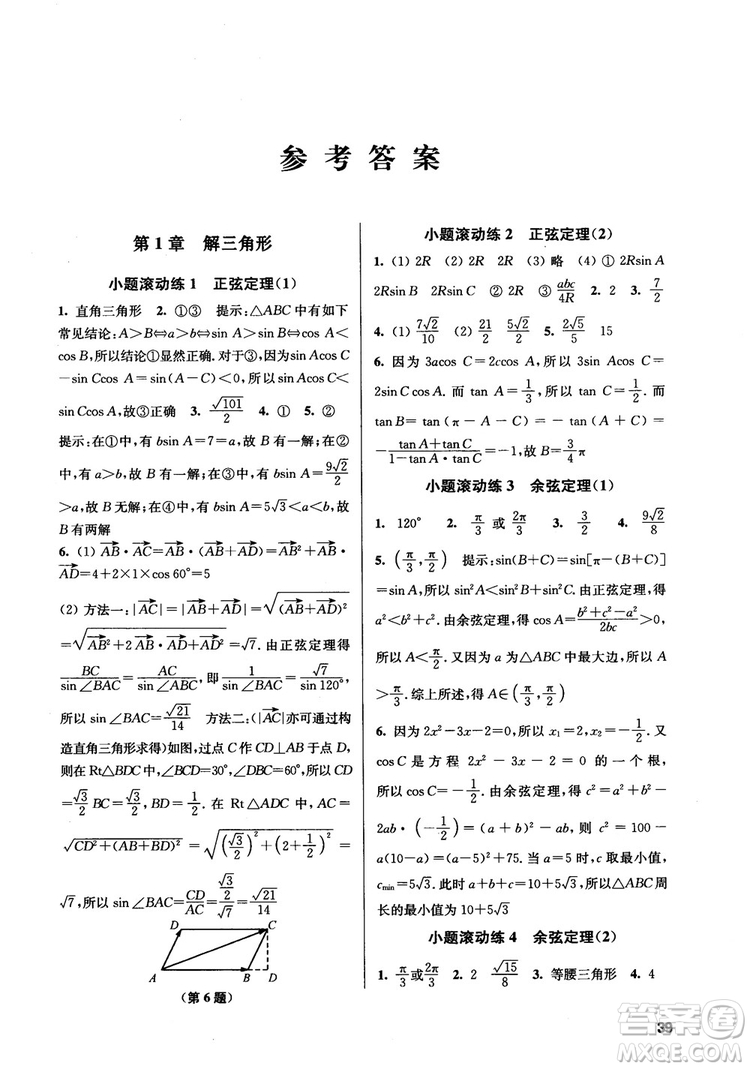 参考答案
第1章 解三角形
小题滚动练1 正弦定理(1)
1. 直角三角形 2. ①③ 提示:△ABC中有如下
常见结论:A>B⇔a>b⇔sin A>sin B⇔cos A<
cos B,所以结论①显然正确.对于③,因为sin Acos C
-sin Ccos A=sin(A-C)<0,所以sin Acos C<
sin Ccos A,故③正确 3. √101/2 4. ① 5. ②
提示:在①中,有bsin A=7=a,故B有一解;在②
中,有a>b,故B有一解;在③中,有bsin A=9√2/2
>a,故无解;在④中,有bsin A=5√3<a<b,故
B有两解
6. (1) AB·AC=AB·(AB+AD)=AB²+AB·
AD=4+2×1×cos 60°=5
(2) 方法一:|AC|=|AB+AD|=√(AB+AD)²
=√AB²+2AB·AD+AD²=√7.由正弦定理得
BC/sin∠BAC=AC/sin∠ABC,即1/sin∠BAC=√7/sin 120°,
所以sin∠BAC=√21/14 方法二:(|AC|亦可通过构
造直角三角形求得)如图,过点C作CD⊥AB于点D,
则在Rt△BDC中,∠BCD=30°,∠DBC=60°,所以CD
=√3/2 BC=√3/2,BD=1/2.在Rt△ADC中,AC=
√CD²+(AB+BD)²=√(√3/2)²+(2+1/2)²=
√7,所以sin∠BAC=CD/AC=(√3/2)/√7=√21/14
D C
A B D
(第6题)
小题滚动练2 正弦定理(2)
1. (1) 2R (2) 2R (3) 略 (4) ① 2Rsin A
2Rsin B 2Rsin C ③ abc/4R 2. 2 3. 7/2
4. (1) 7√2/10 (2) 21/2 5√2/2 5. 2√5/5 15
6. 因为3acos C=2ccos A,所以3sin Acos C=
2sin Ccos A.而tan A=1/3,所以tan C=1/2.而
tan B=tan(π-A-C)=-tan(A+C)=
-(tan A+tan C)/(1-tan A·tan C)=-1,故B=3/4 π
小题滚动练3 余弦定理(1)
1. 120° 2. π/3或2π/3 3. 3/2 4. 9√2/8
5. (π/3,π/2) 提示:sin(B+C)=sin[π-(B+C)]
=sin A,所以sin²A<sin²B+sin²C.由正弦定理,得
a²<b²+c²,所以b²+c²-a²>0.由余弦定理,得cos A=(b²+c²-a²)/2bc>0,
所以A<π/2.又因为a为△ABC中最大边,所以A>
π/3.综上所述,得A∈(π/3,π/2)
6. 因为2x²-3x-2=0,所以x₁=2,x₂=-1/2.又
cos C是方程2x²-3x-2=0的一个根,
所以cos C=-1/2.由余弦定理,得c²=a²+b²-
2ab·(-1/2)=(a+b)²-ab,所以c²=100-
a(10-a)=(a-5)²+75.当a=5时,c有最小值,
cmin=5√3.此时a+b+c=10+5√3,所以△ABC周
长的最小值为10+5√3
小题滚动练4 余弦定理(2)
1. π/3或2π/3 2. 2 √15/8 3. 等腰三角形 4. 4
39